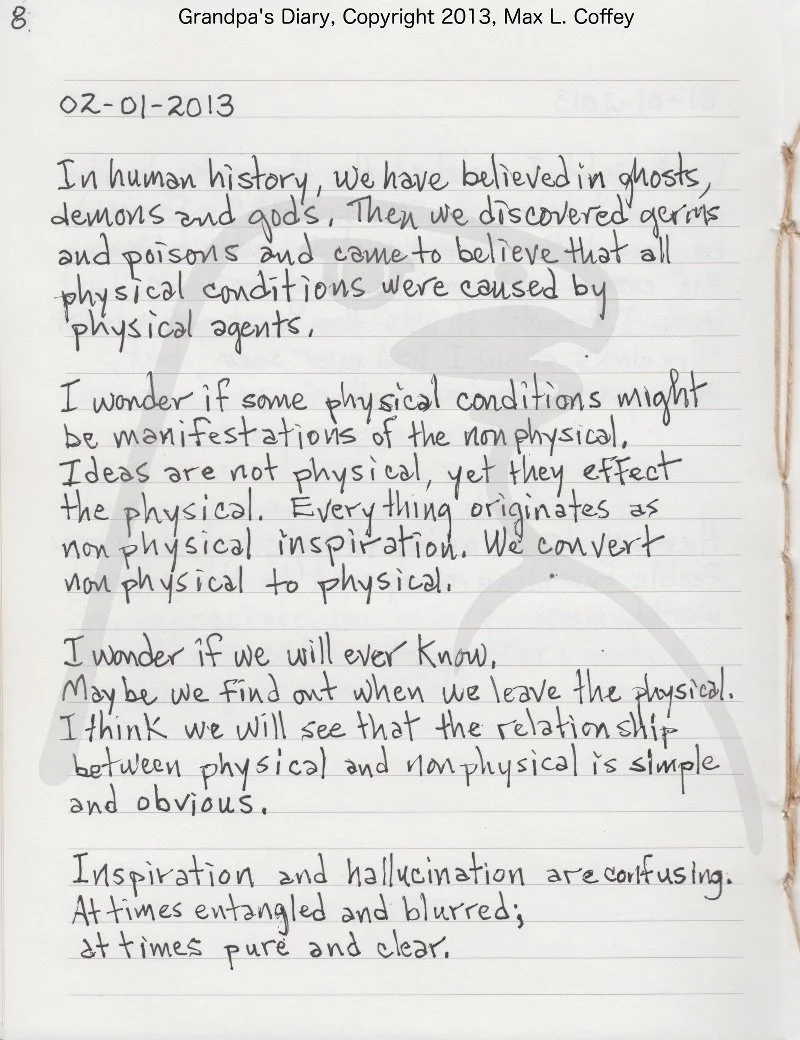 8.
Grandpa's Diary, Copyright 2013, Max L. Coffey
02-01-2013
In human history, we have believed in ghosts,
demons and gods. Then we discovered germs
and poisons and came to believe that all
physical conditions were caused by
physical agents.
I wonder if some physical conditions might
be manifestations of the nonphysical.
Ideas are not physical, yet they effect
the physical. Everything originates as
nonphysical inspiration. We convert
nonphysical to physical.
I wonder if we will ever know.
Maybe we find out when we leave the physical.
I think we will see that the relationship
between physical and nonphysical is simple
and obvious.
Inspiration and hallucination are confusing.
At times entangled and blurred;
at times pure and clear.